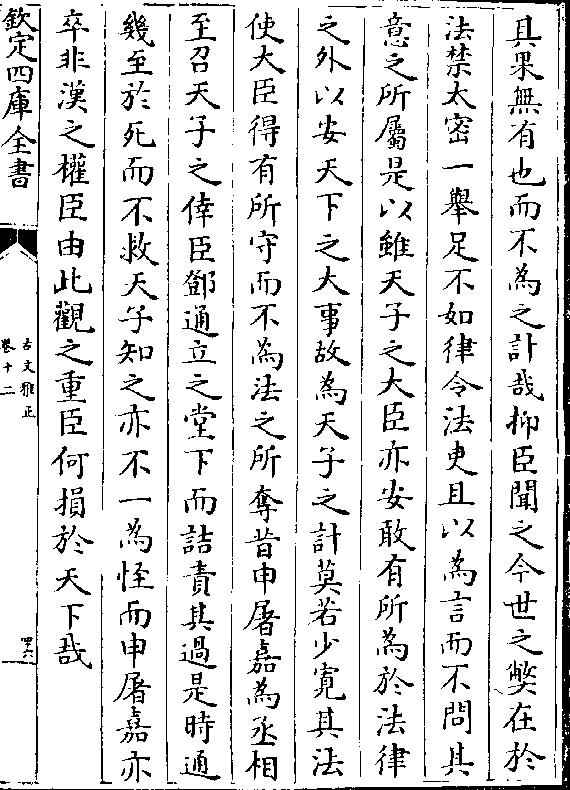 具果無有也而不為之計哉抑臣聞之今世之弊在於
法禁太密一舉足不如律令法吏且以為言而不問其
意之所屬是以雖天子之大臣亦安敢有所為於法律
之外以安天下之大事故為天子之計莫若少寛其法
使大臣得有所守而不為法之所奪昔申屠嘉為丞相
至召天子之倖臣鄧通立之堂下而詰責其過是時通
幾至於死而不救天子知之亦不一為怪而申屠嘉亦
卒非漢之權臣由此觀之重臣何損於天下哉
欽定四庫全書
古文雅正
卷十二
四六